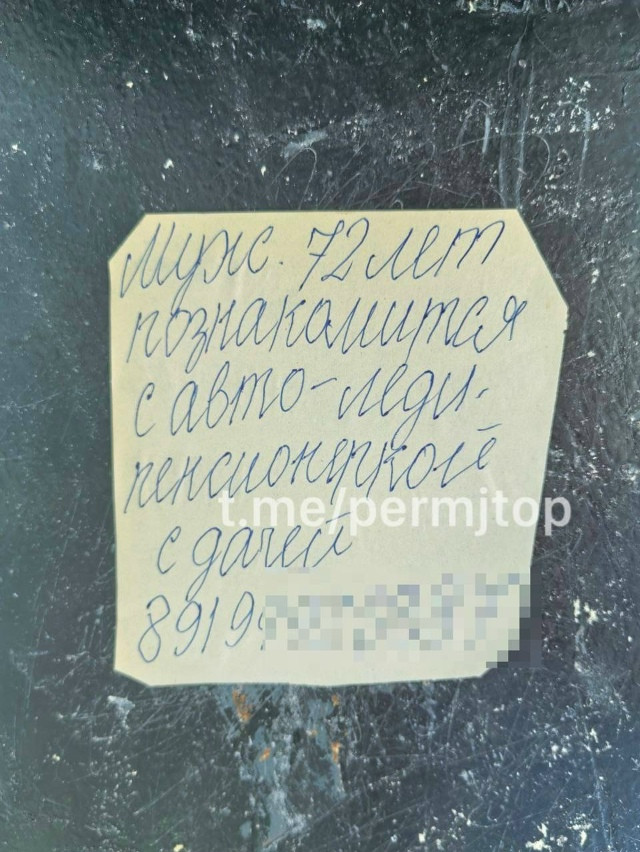 Муж. 72 лет
познакомится
с авто-леди-
пенсионеркой
t.me/permjtop
с дачей
8919